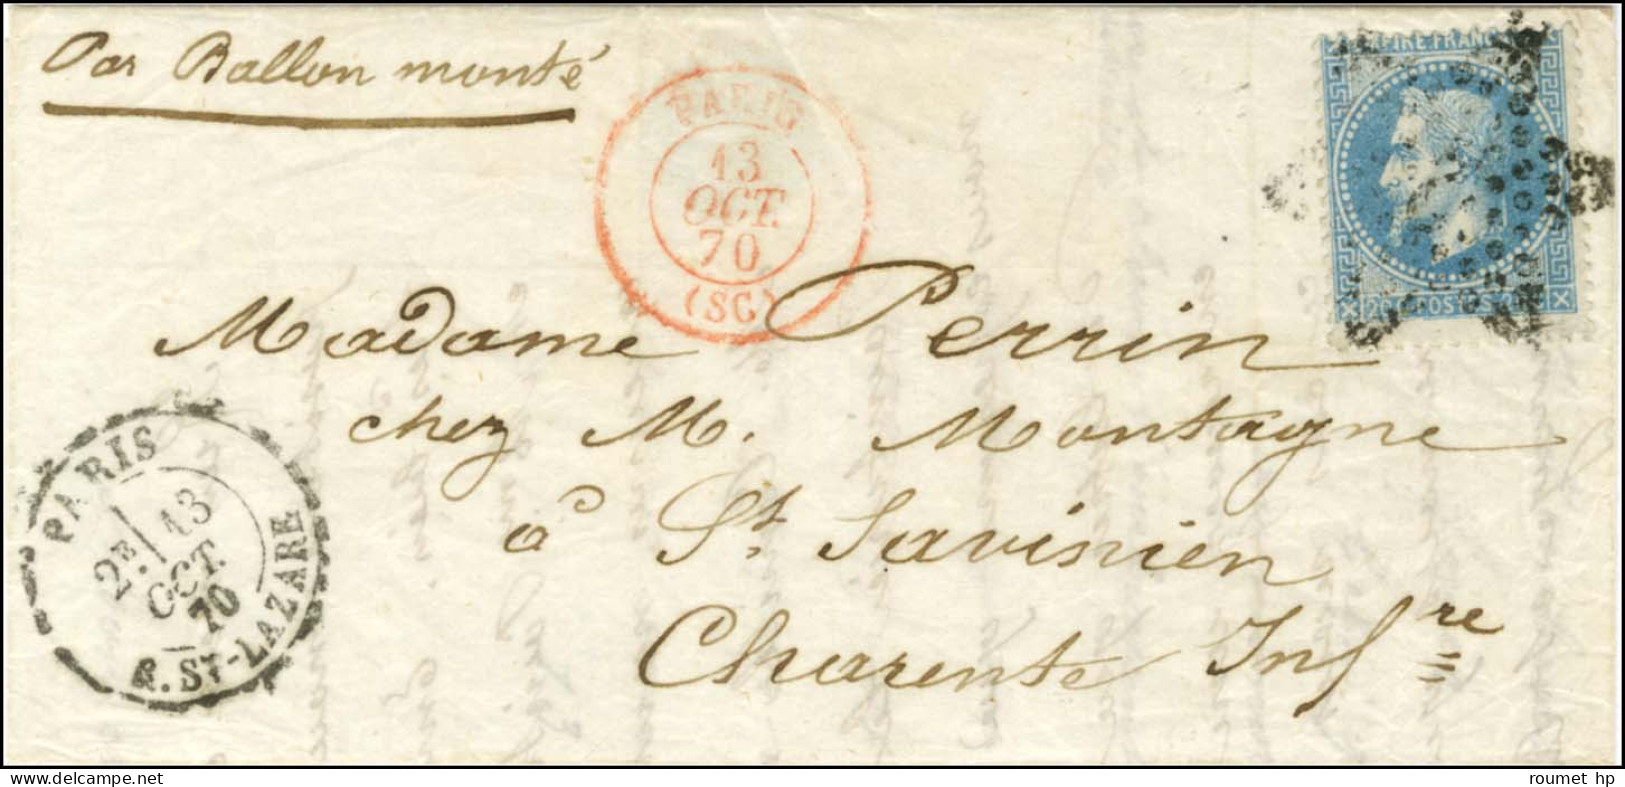 Par Ballon monté
PARIS
13
OCT.
70
(SC)
EMPIRE FRANC
20 C POSTES 20
Madame Perrin
chez M. Montagne
à St. Savinien
Charente Infre
PARIS
2E 13
OCT.
70
R. ST-LAZARE
roumet hp